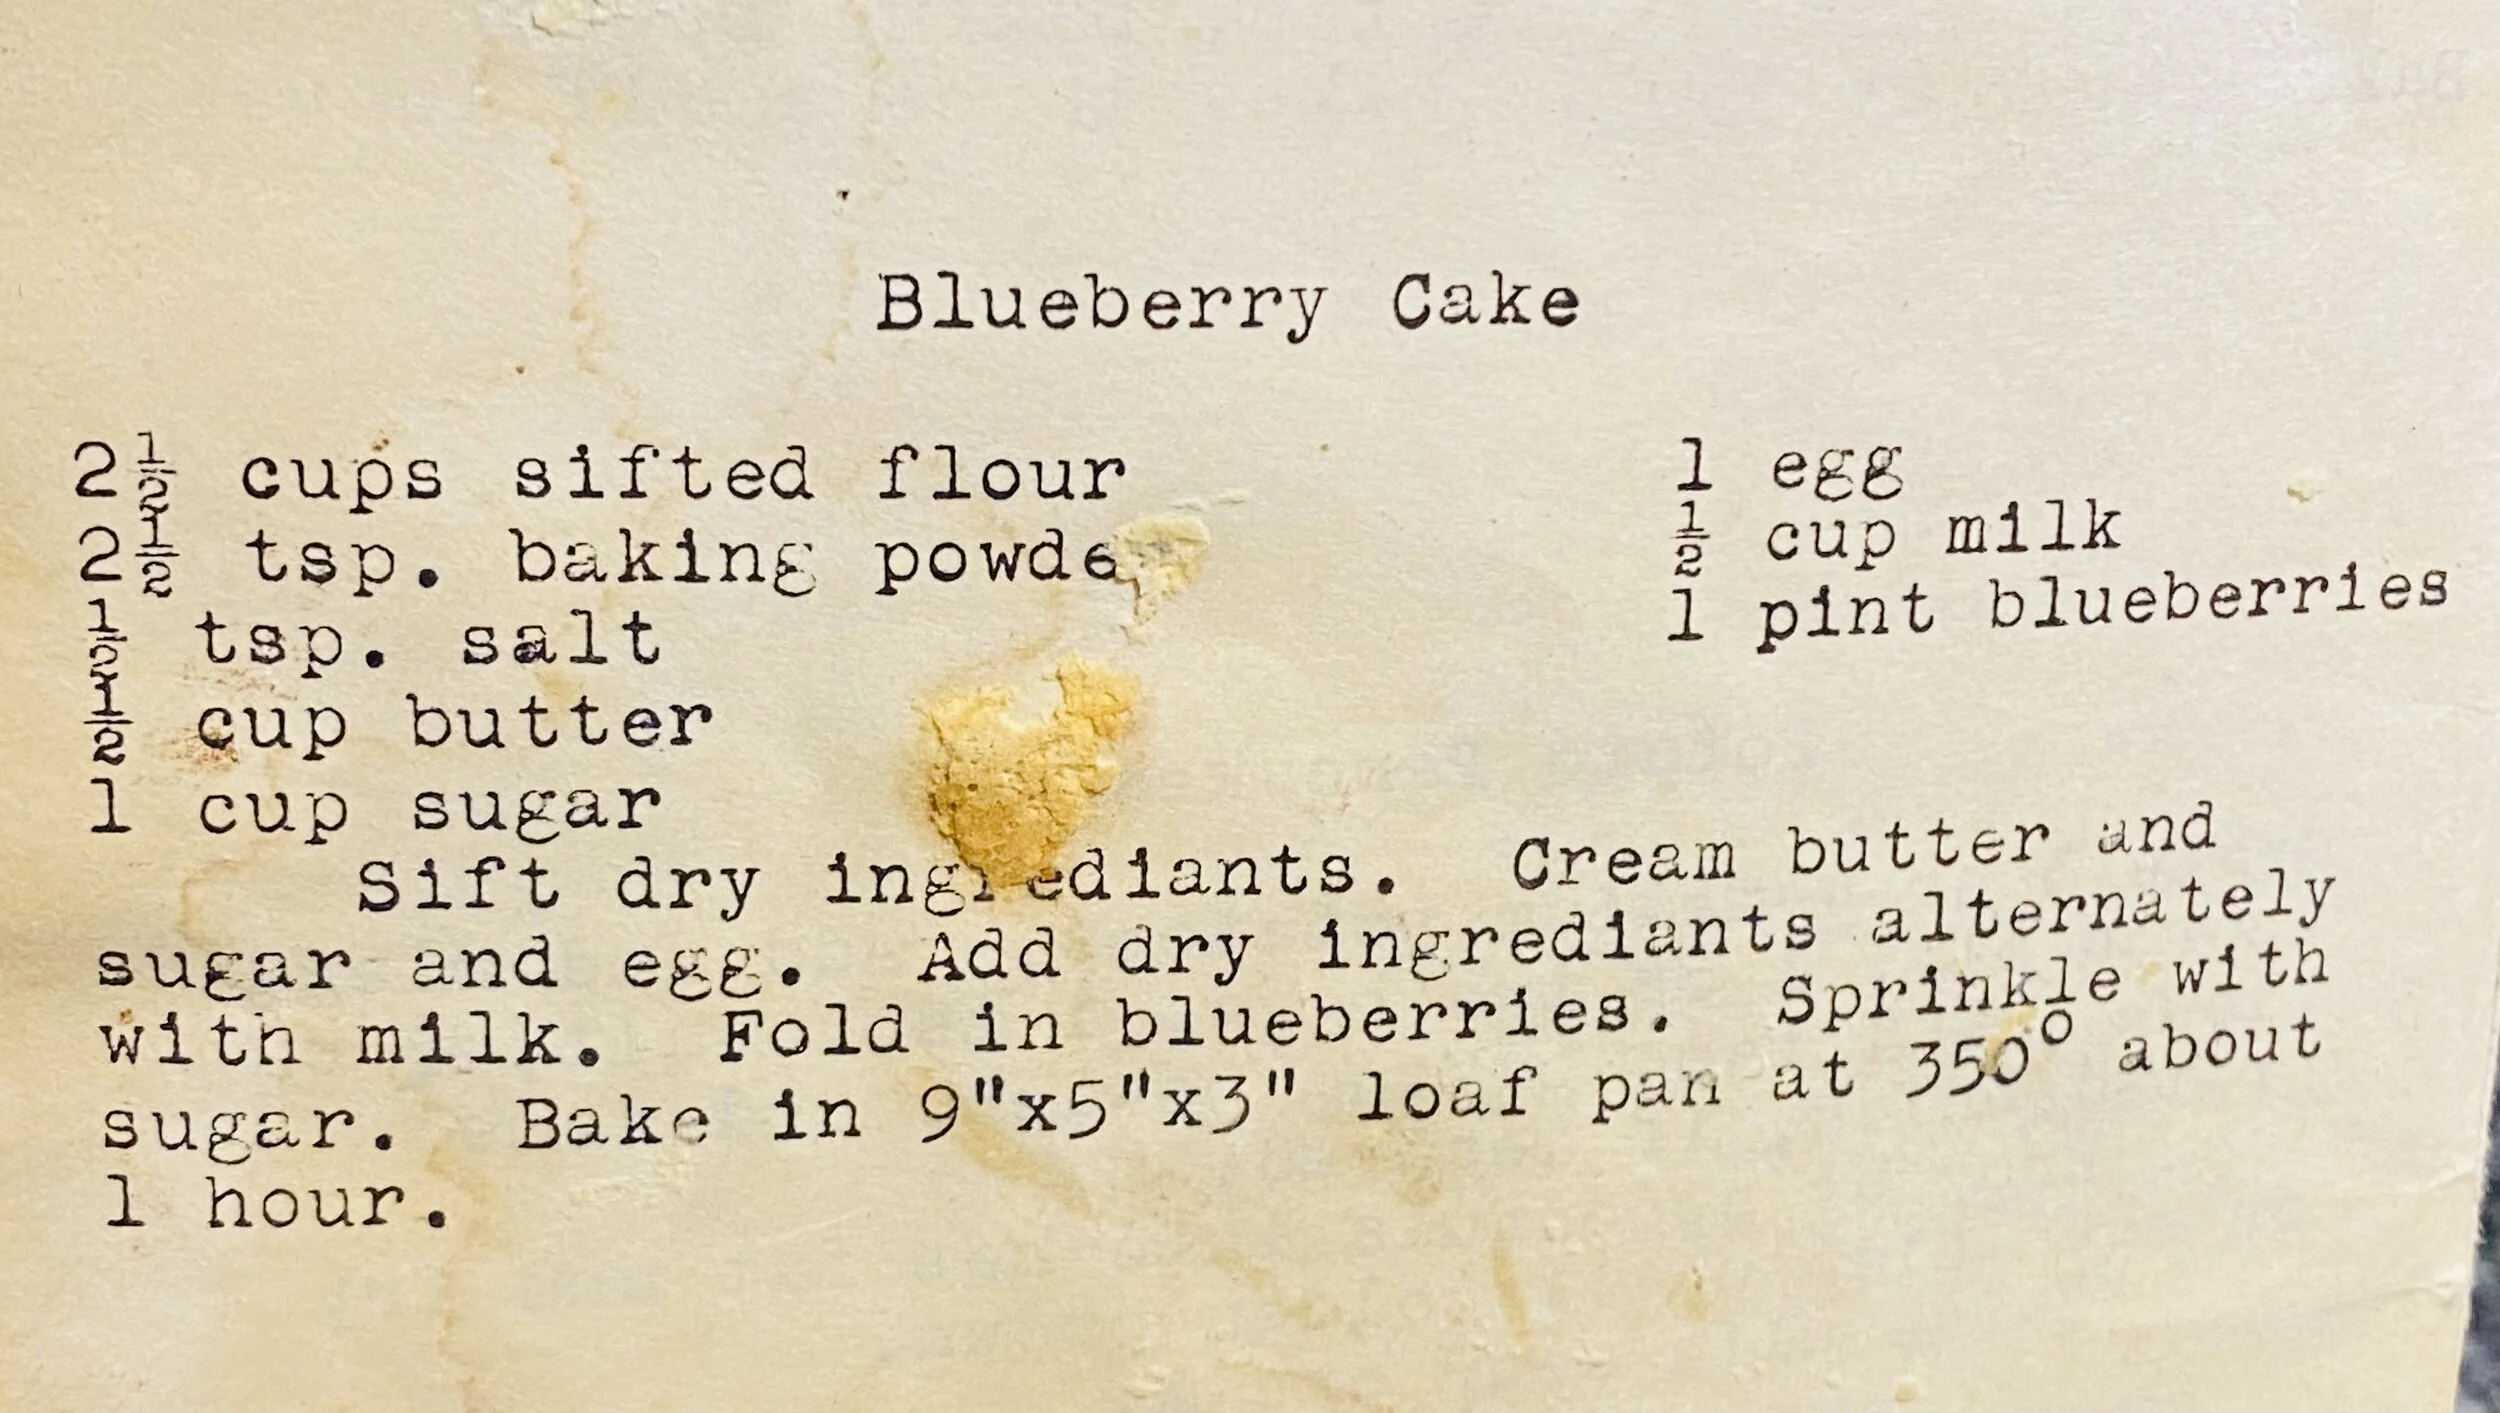 Blueberry Cake
2½ cups sifted flour
2½ tsp. baking powde
½ tsp. salt
½ cup butter
1 cup sugar
1 egg
½ cup milk
1 pint blueberries
Sift dry ingrediants. Cream butter and
sugar and egg. Add dry ingrediants alternately
with milk. Fold in blueberries. Sprinkle with
sugar. Bake in 9"x5"x3" loaf pan at 350° about
1 hour.